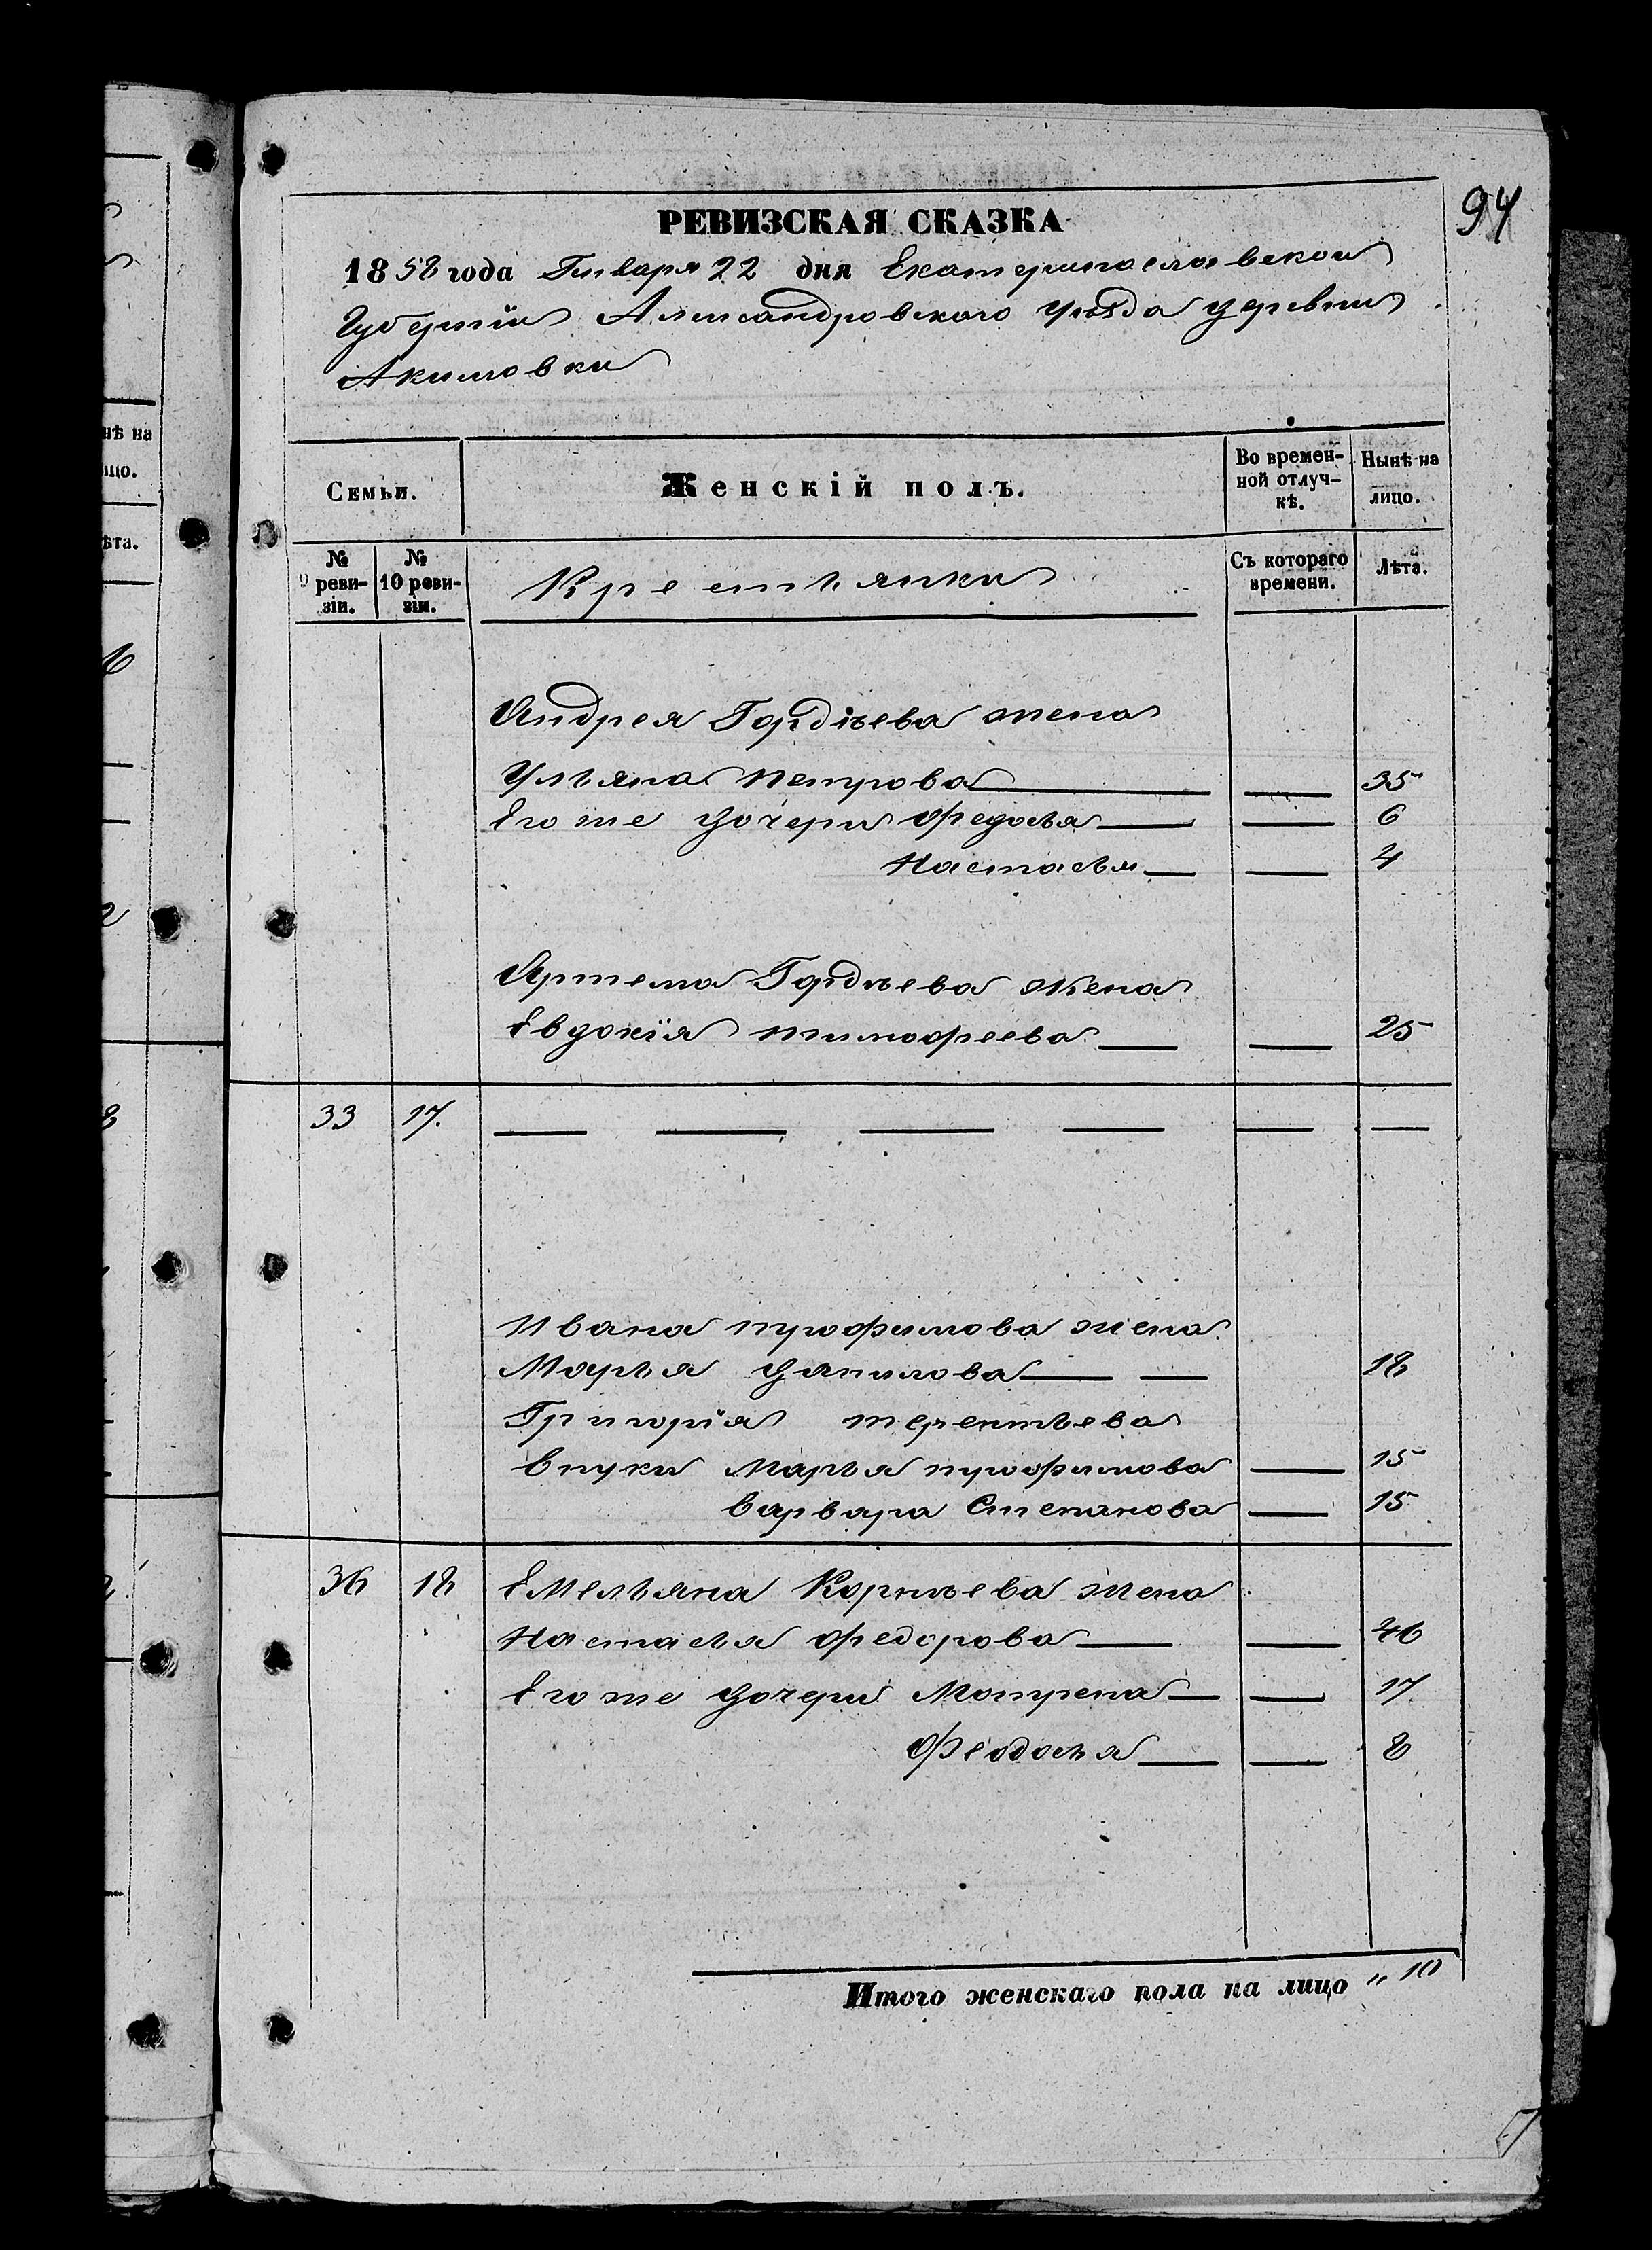 94
РЕВИЗСКАЯ СКАЗКА
1858 года Генваря 22 дня Екатеринославской
Губерніи Александровского уѣзда деревни
Акимовки
Семьи. Женскій полъ. Во временной отлучкѣ. Нынѣ на лицо.
№ 9 ревизіи. № 10 ревизіи. Крестьянки Съ котораго времени. Лѣта.
Андрея Гордѣева жена
Ульяна Петрова — — 35
Его же дочери Федосья — — 6
Настасья — — 4
Артема Гордѣева жена
Евдокія Тимофеева — — 25
33 17. — — — — — —
Ивана Трофимова жена
Марья Данилова — — 18
Григорія Терентьева
внуки Марья Трофимова — 15
Варвара Степанова — 15
36 18 Емельяна Корнѣева жена
Настасья Федорова — — 46
Его же дочери Мотрена — — 17
Феодосья — — 8
Итого женскаго пола на лицо „ 10
нѣ на
ицо.
ѣта.